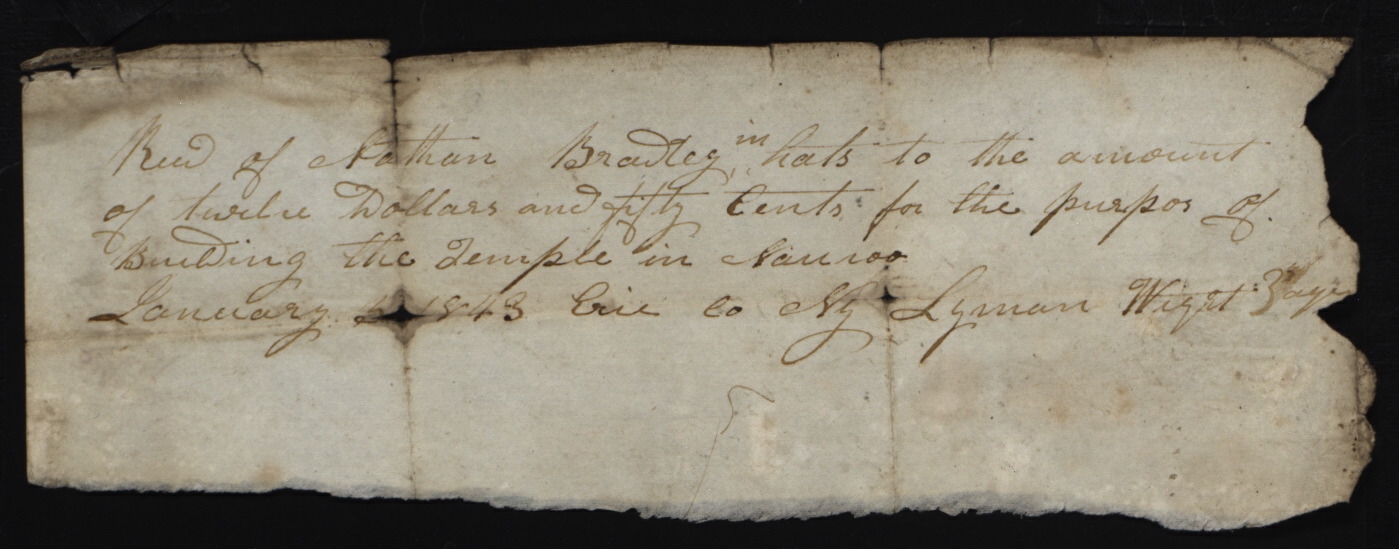 Recd of Nathan Bradley in hats to the amount
of twelve Dollars and fifty Cents for the purpos of
Building the Temple in Nauvoo
January 1843 Erie Co NY Lyman Wight